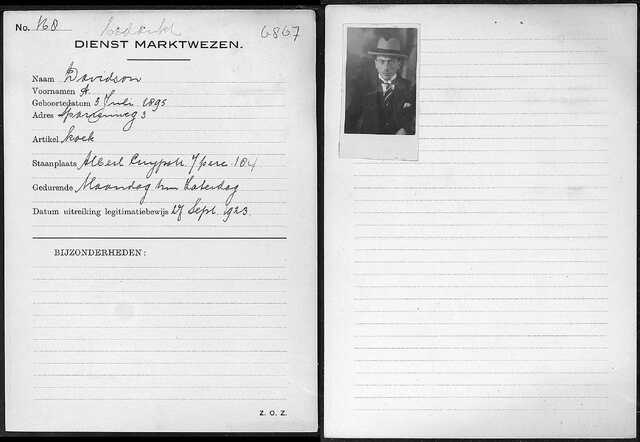 No. 168 bedankt 6867
DIENST MARKTWEZEN.
Naam Davidson
Voornamen A.
Geboortedatum 3 Juli 1895
Adres 3
Artikel koek
Staanplaats Albert Cuypstr. 7 perc. 184
Gedurende Maandag t/m Zaterdag
Datum uitreiking legitimatiebewijs 27 Sept. 1923.
BIJZONDERHEDEN:
Z. O. Z.